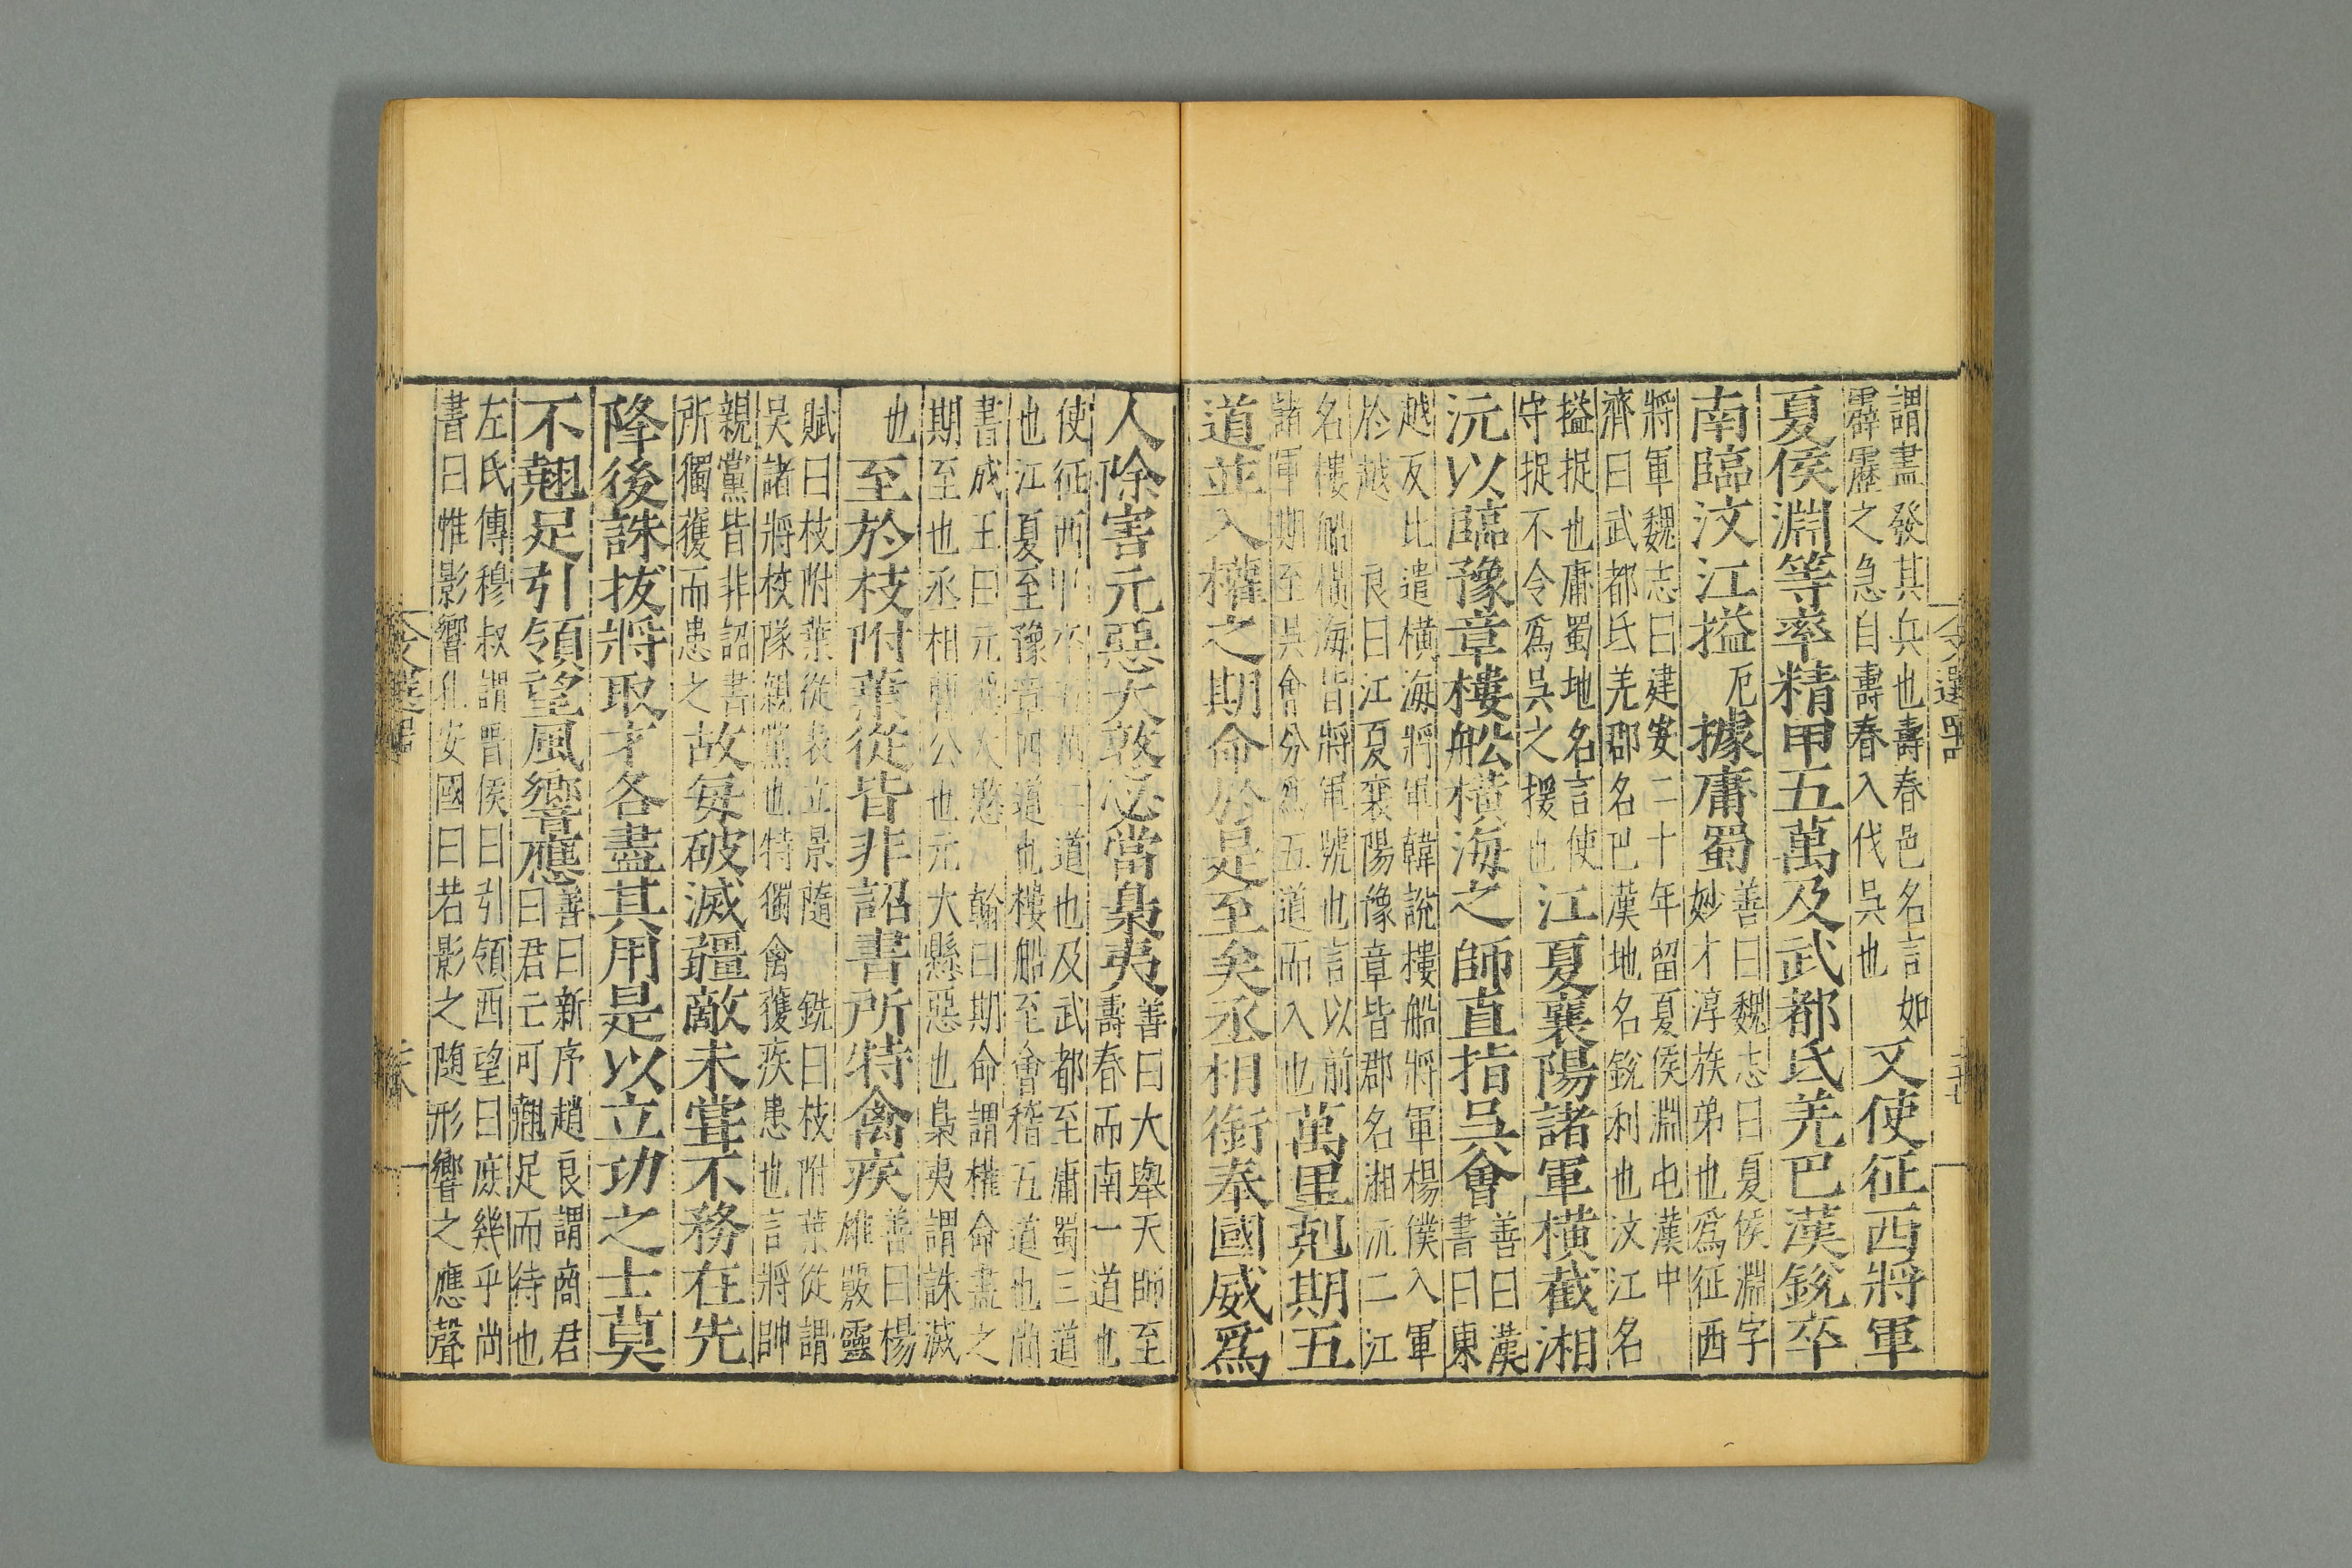 謂盡發其兵也壽春邑名言如
霹靂之急自壽春入伐吳也
又使征西將軍
夏侯淵等率精甲五萬及武都氐羌巴漢銳卒
南臨汶江搤
厄
據庸蜀
善曰魏志曰夏侯淵字
妙才淳族弟也爲征西
將軍魏志曰建安二十年留夏侯淵屯漢中
濟曰武都氐羌郡名巴漢地名銳利也汶江名
搤捉也庸蜀地名言使
守捉不令爲吳之援也
江夏襄陽諸軍橫截湘
沅以臨豫章樓舩橫海之師直指吳會
善曰漢
書曰東
越反比遣橫海將軍韓說樓船將軍楊僕入軍
於越良曰江夏襄陽豫章皆郡名湘沅二江
名樓船橫海皆將軍號也言以前
諸軍期至吳會分爲五道而入也
萬里剋期五
道並入權之期命於是至矣丞相銜奉國威爲
人除害元惡大憝必當梟夷
善曰大舉天師至
壽春而南一道也
使征西 道也及武都至庸蜀三道
也江夏至豫章四道也樓船至會稽五道也尚
書成王曰元惡大憝翰曰期命謂權命盡之
期至也丞相曹公也元大懸惡也梟夷謂誅滅
也
至於枝附葉從皆非詔書所特禽疾
善曰楊
雄覈靈
賦曰枝附葉從表立景隨銑曰枝附葉從謂
吳諸將校隊親黨也特獨禽獲疾患也言將帥
親黨皆非詔書
所獨獲而患之
故每破滅疆敵未甞不務在先
降後誅拔將取才各盡其用是以立功之士莫
不翹足引領望風響應
善曰新序趙良謂商君
曰君亡可翹足而待也
左氏傳穆叔謂晋侯曰引領西望曰庶幾乎尚
書曰惟影響孔安國曰若影之隨形響之應聲